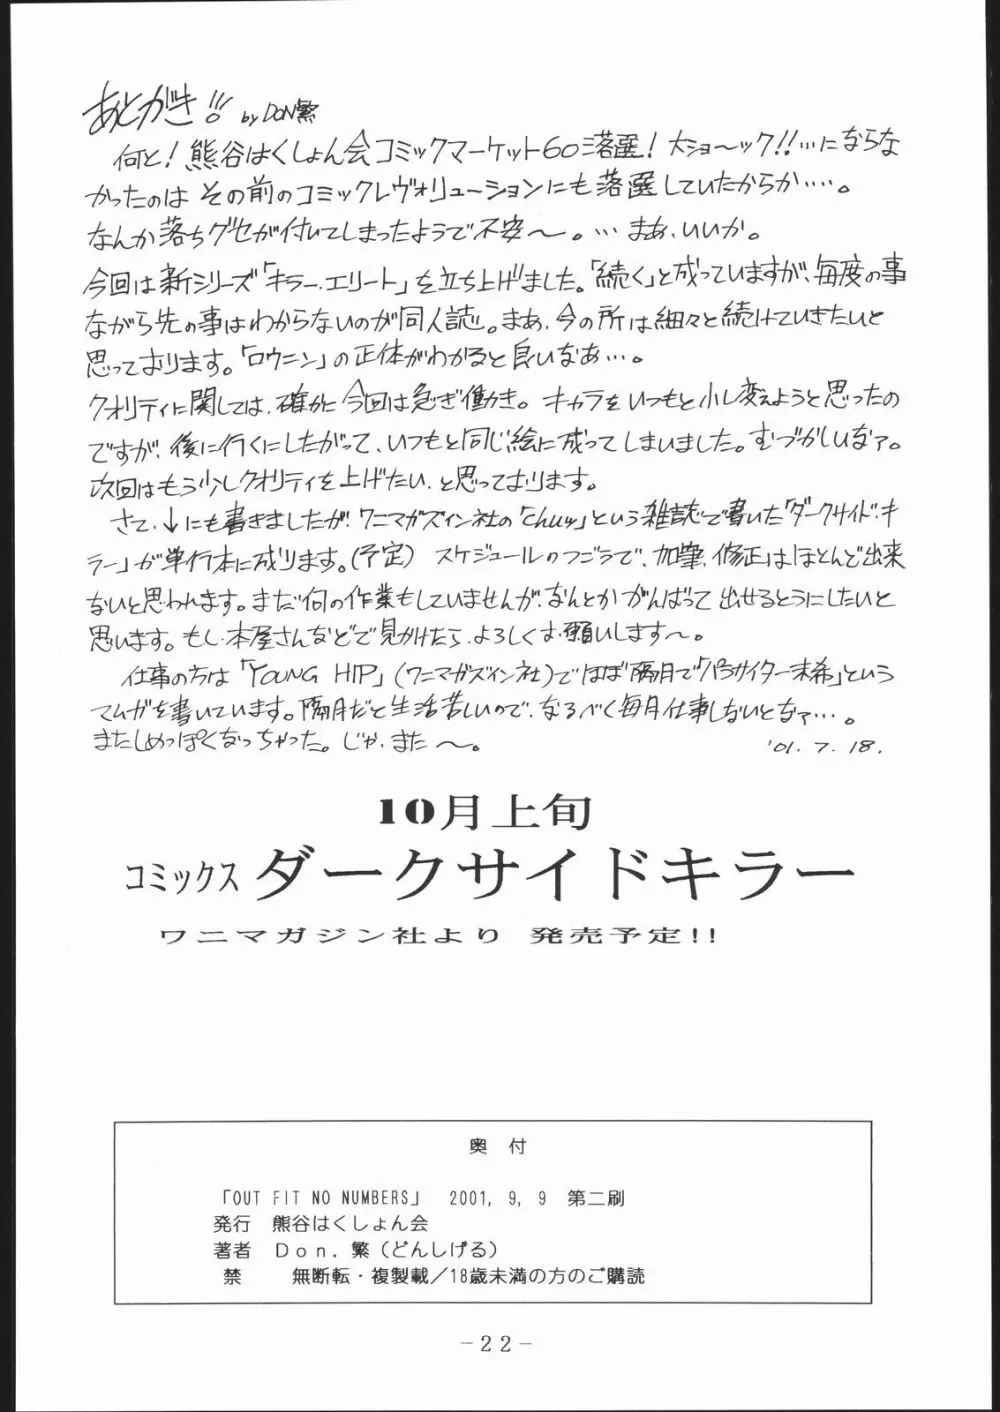 あとがき!! by DON繁
何と!熊谷はくしょん会コミックマーケット60落選!大ショ〜ック!!…にならな
かったのは その前のコミックレヴォリューションにも落選していたからか‥‥。
なんか落ちグセが付いてしまったようで不安〜。… まあ、いいか。
今回は新シリーズ「キラー・エリート」を立ち上げました。「続く」と成っていますが、毎度の事
ながら先の事はわからないのが同人誌。まあ、今の所は細々と続けていきたいと
思っております。「ロウニン」の正体がわかると良いなあ…。
クオリティに関しては、確かに今回は急ぎ働き。キャラをいつもと少し変えようと思ったの
ですが、後に行くにしたがって、いつもと同じ絵に成ってしまいました。むづかしいなァ。
次回はもう少しクオリティを上げたい、と思っております。
さて、↓にも書きましたが、ワニマガズィン社の「chuッ」という雑誌で書いた「ダークサイド・キ
ラー」が単行本に成ります。(予定) スケジュールのつごうで、加筆、修正はほとんど出来
ないと思われます。まだ何の作業もしていませんが、なんとかがんばって出せるようにしたいと
思います。もし、本屋さんなどで見かけたら、よろしくお願いします〜。
仕事の方は「YOUNG HIP」(ワニマガズィン社)でほぼ隔月で「パラサイター未希」という
マンガを書いています。隔月だと生活苦しいので、なるべく毎月仕事しないとなァ…。
またしめっぽくなっちゃった。じゃ、また〜。 '01.7.18.
10月上旬
コミックス ダークサイドキラー
ワニマガジン社より 発売予定!!
奥 付
「OUT FIT NO NUMBERS」 2001, 9, 9 第二刷
発行 熊谷はくしょん会
著者 Don. 繁(どんしげる)
禁 無断転・複製載/18歳未満の方のご購読
-22-